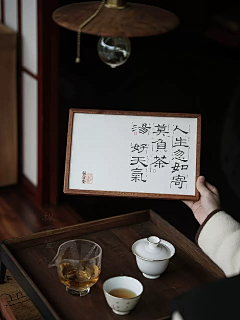 人生忽如寄
莫負茶
湯好天氣